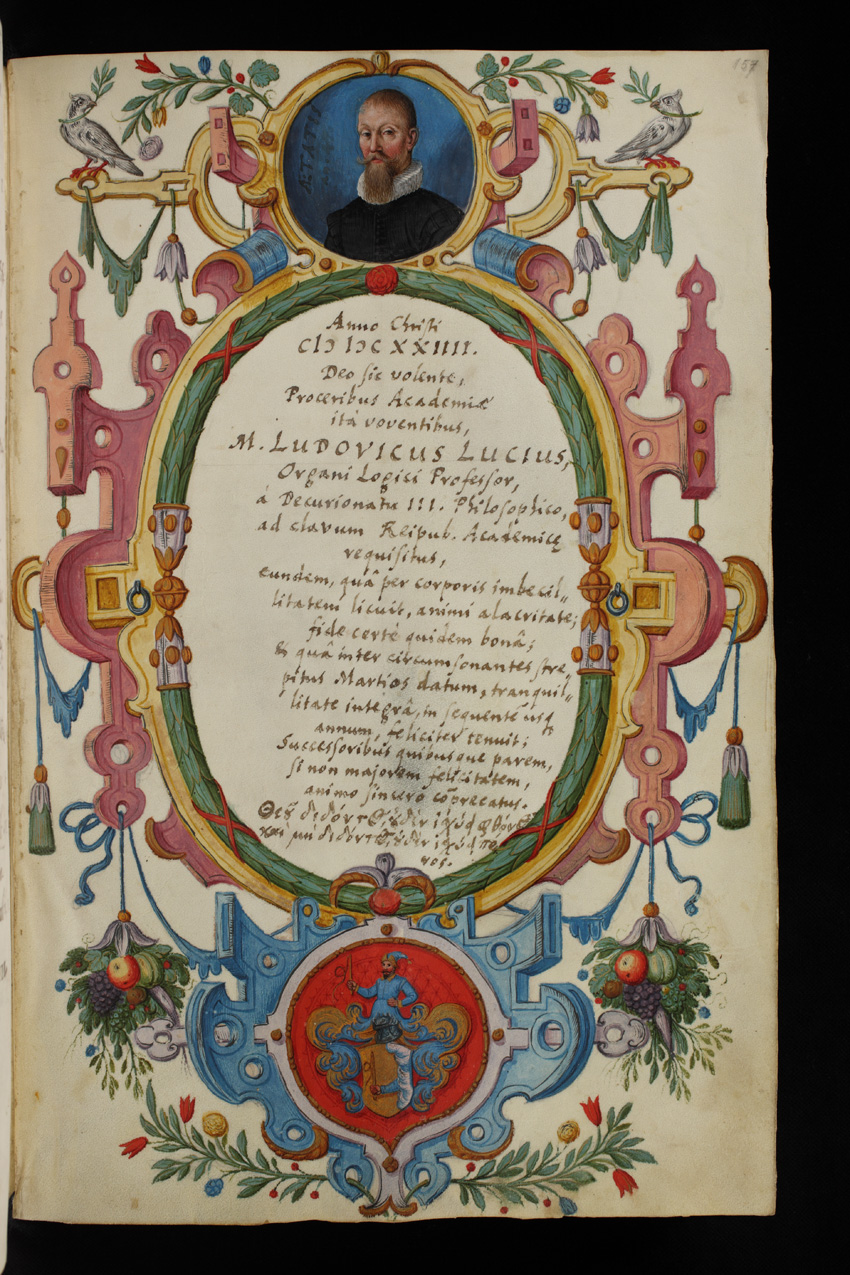 157
ÆTATIS
Anno Christi
CIↃ IↃC XXIIII.
Deo sic volente,
Proceribus Academiæ
ità voventibus,
M. LUDOVICUS LUCIUS,
Organi Logici Professor,
á Decurionatu III. Philosophico,
ad clavum Reipub. Academicę
requisitus,
eundem, quâ per corporis imbecil„
litatem licuit, animi alacritate;
fide certè quidem bonâ;
& quâ inter circumsonantes stre„
pitus Martios datum, tranquil„
litate integrâ, in sequentē usq
annum, feliciter tenuit;
Successoribus quibusque parem,
si non majorem felicitatem,
animo sincero cōprecatus.
Θεῦ διδόντ
καὶ μὴ διδόντ
νος.